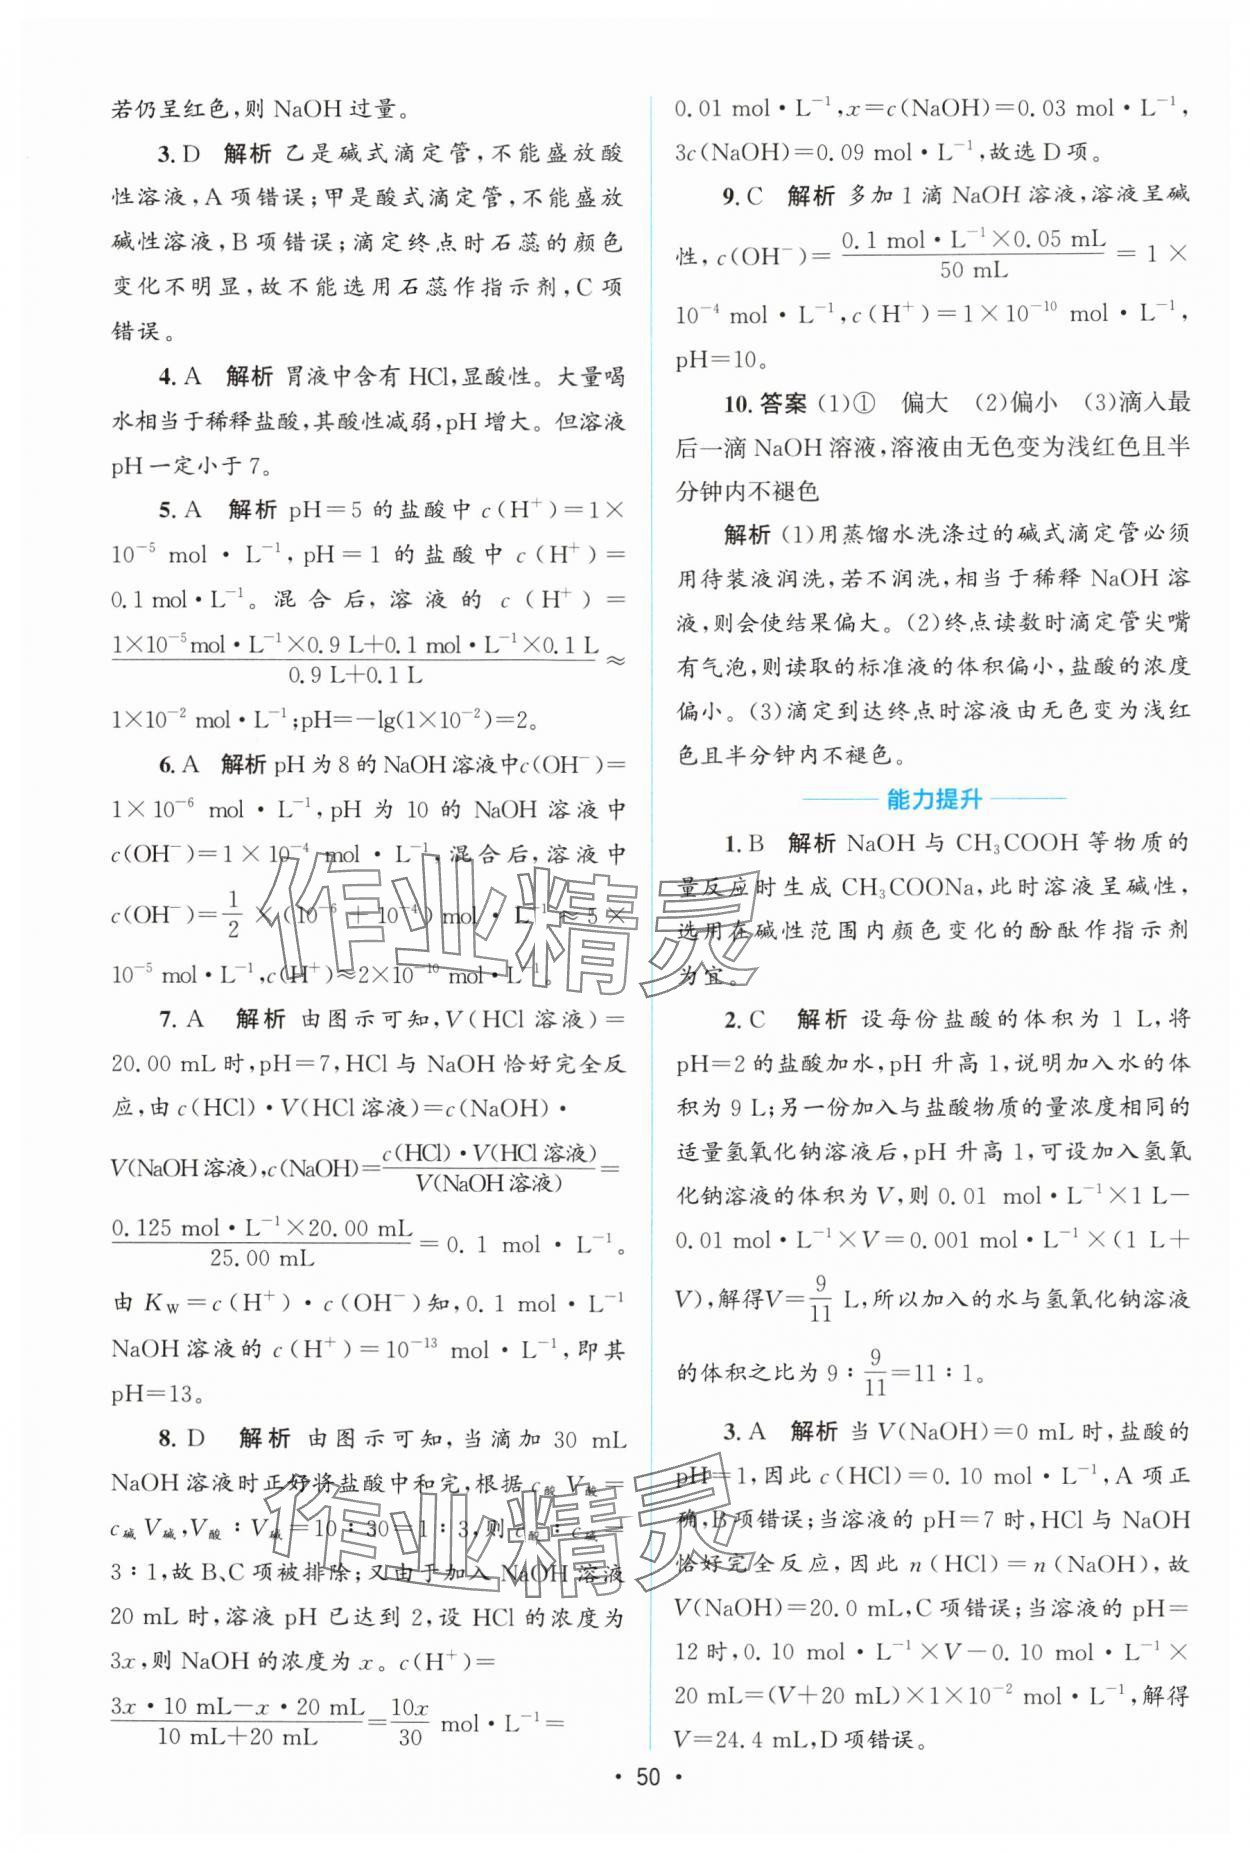 若仍呈红色,则 NaOH 过量。
3. D 解析 乙是碱式滴定管,不能盛放酸
性溶液,A 项错误;甲是酸式滴定管,不能盛放
碱性溶液,B 项错误;滴定终点时石蕊的颜色
变化不明显,故不能选用石蕊作指示剂,C 项
错误。
4. A 解析 胃液中含有 HCl,显酸性。大量喝
水相当于稀释盐酸,其酸性减弱,pH 增大。但溶液
pH 一定小于 7。
5. A 解析 pH=5 的盐酸中 c(H⁺)=1×
10⁻⁵ mol·L⁻¹,pH=1 的盐酸中 c(H⁺)=
0.1 mol·L⁻¹。混合后,溶液的 c(H⁺)=
(1×10⁻⁵ mol·L⁻¹×0.9 L+0.1 mol·L⁻¹×0.1 L)/(0.9 L+0.1 L) ≈
1×10⁻² mol·L⁻¹;pH=-lg(1×10⁻²)=2。
6. A 解析 pH 为 8 的 NaOH 溶液中c(OH⁻)=
1×10⁻⁶ mol·L⁻¹,pH 为 10 的 NaOH 溶液中
c(OH⁻)=1×10⁻⁴ mol·L⁻¹,混合后,溶液中
c(OH⁻)=1/2×(10⁻⁶+10⁻⁴) mol·L⁻¹≈5×
10⁻⁵ mol·L⁻¹,c(H⁺)≈2×10⁻¹⁰ mol·L⁻¹。
7. A 解析 由图示可知,V(HCl 溶液)=
20.00 mL 时,pH=7,HCl 与 NaOH 恰好完全反
应,由 c(HCl)·V(HCl 溶液)=c(NaOH)·
V(NaOH 溶液),c(NaOH)=(c(HCl)·V(HCl 溶液))/(V(NaOH 溶液))=
(0.125 mol·L⁻¹×20.00 mL)/(25.00 mL)=0.1 mol·L⁻¹。
由 K_W=c(H⁺)·c(OH⁻)知,0.1 mol·L⁻¹
NaOH 溶液的 c(H⁺)=10⁻¹³ mol·L⁻¹,即其
pH=13。
8. D 解析 由图示可知,当滴加 30 mL
NaOH 溶液时正好将盐酸中和完,根据 c酸 V酸=
c碱 V碱,V酸∶V碱=10∶30=1∶3,则 c酸∶c碱=
3∶1,故 B、C 项被排除;又由于加入 NaOH 溶液
20 mL 时,溶液 pH 已达到 2,设 HCl 的浓度为
3x,则 NaOH 的浓度为 x。c(H⁺)=
(3x·10 mL-x·20 mL)/(10 mL+20 mL)=10x/30 mol·L⁻¹=
0.01 mol·L⁻¹,x=c(NaOH)=0.03 mol·L⁻¹,
3c(NaOH)=0.09 mol·L⁻¹,故选 D 项。
9. C 解析 多加 1 滴 NaOH 溶液,溶液呈碱
性,c(OH⁻)=(0.1 mol·L⁻¹×0.05 mL)/(50 mL)=1×
10⁻⁴ mol·L⁻¹,c(H⁺)=1×10⁻¹⁰ mol·L⁻¹,
pH=10。
10. 答案 (1)① 偏大 (2)偏小 (3)滴入最
后一滴 NaOH 溶液,溶液由无色变为浅红色且半
分钟内不褪色
解析 (1)用蒸馏水洗涤过的碱式滴定管必须
用待装液润洗,若不润洗,相当于稀释 NaOH 溶
液,则会使结果偏大。(2)终点读数时滴定管尖嘴
有气泡,则读取的标准液的体积偏小,盐酸的浓度
偏小。(3)滴定到达终点时溶液由无色变为浅红
色且半分钟内不褪色。
能力提升
1. B 解析 NaOH 与 CH₃COOH 等物质的
量反应时生成 CH₃COONa,此时溶液呈碱性,
选用在碱性范围内颜色变化的酚酞作指示剂
为宜。
2. C 解析 设每份盐酸的体积为 1 L,将
pH=2 的盐酸加水,pH 升高 1,说明加入水的体
积为 9 L;另一份加入与盐酸物质的量浓度相同的
适量氢氧化钠溶液后,pH 升高 1,可设加入氢氧
化钠溶液的体积为 V,则 0.01 mol·L⁻¹×1 L-
0.01 mol·L⁻¹×V=0.001 mol·L⁻¹×(1 L+
V),解得V=9/11 L,所以加入的水与氢氧化钠溶液
的体积之比为 9∶9/11=11∶1。
3. A 解析 当 V(NaOH)=0 mL 时,盐酸的
pH=1,因此 c(HCl)=0.10 mol·L⁻¹,A 项正
确,B项错误;当溶液的 pH=7 时,HCl 与 NaOH
恰好完全反应,因此 n(HCl)=n(NaOH),故
V(NaOH)=20.0 mL,C 项错误;当溶液的 pH=
12 时,0.10 mol·L⁻¹×V-0.10 mol·L⁻¹×
20 mL=(V+20 mL)×1×10⁻² mol·L⁻¹,解得
V=24.4 mL,D 项错误。
·50·
作业精灵
作业精灵